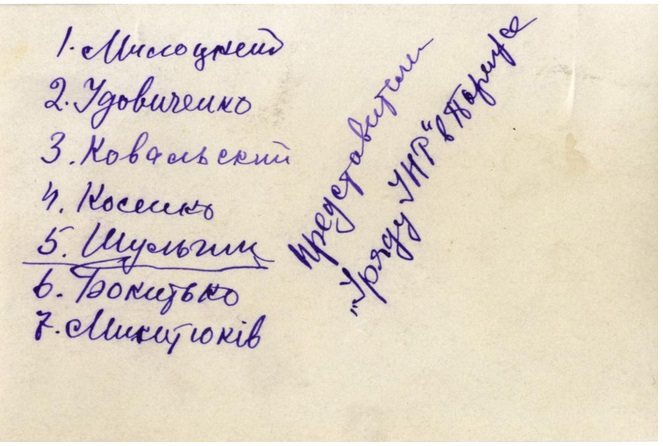 1. Милоцкий
2. Удовиченко
3. Ковальский
4. Косенко
5. Шульгин
6. Бокитько
7. Микитюків
представители
„Уряду УНР“ в Париже